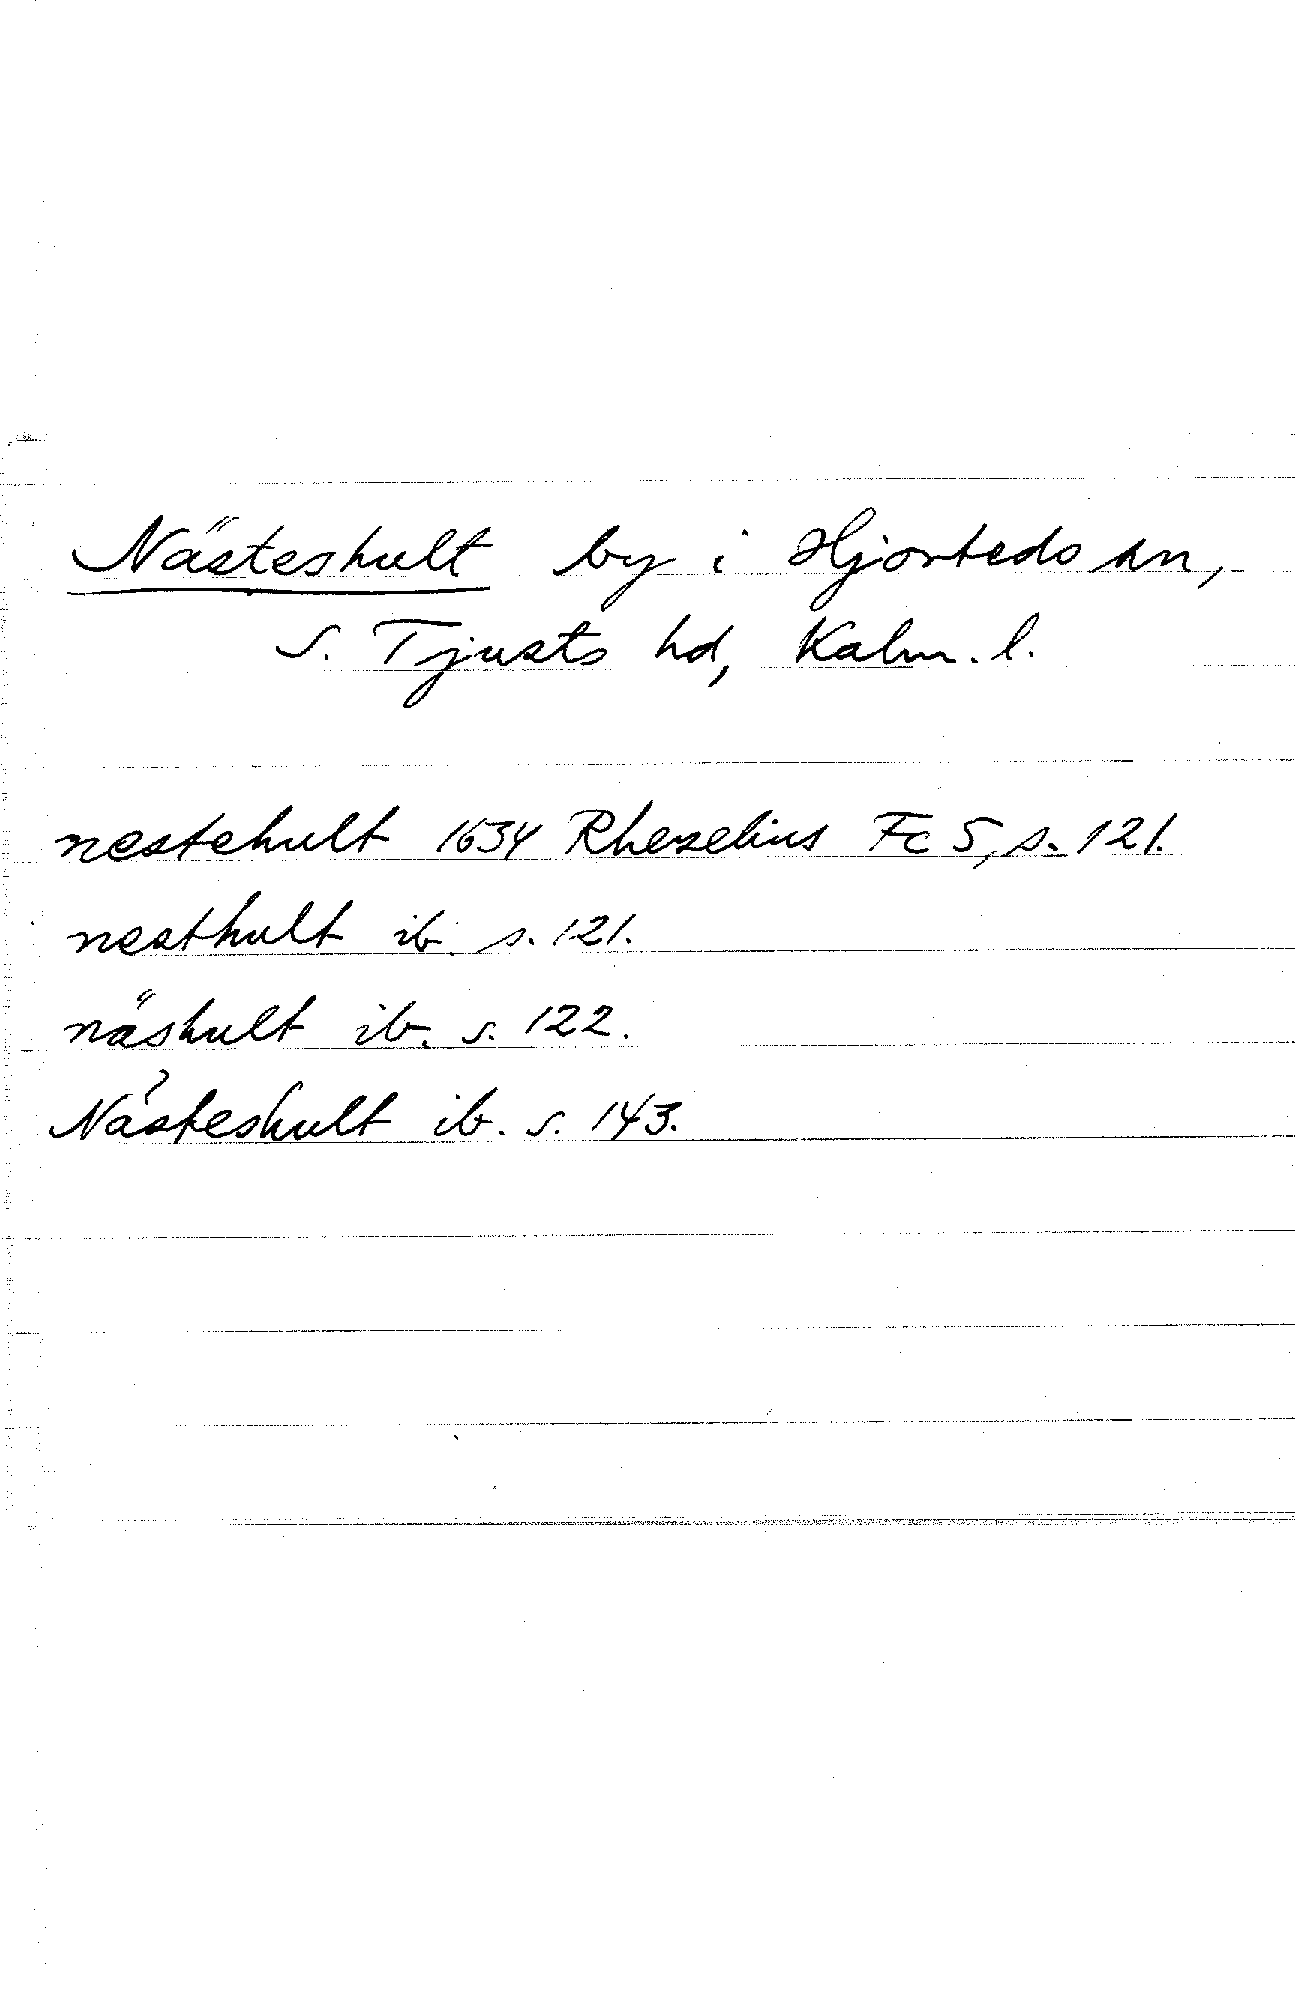 Nästeshult by i Hjorteds sn,
S. Tjusts hd, Kalm. l.
nestehult 1634 Rhezelius Fc 5, s. 121.
nesthult ib. s. 121.
näshult ib. s. 122.
Nåsteshult ib. s. 143.